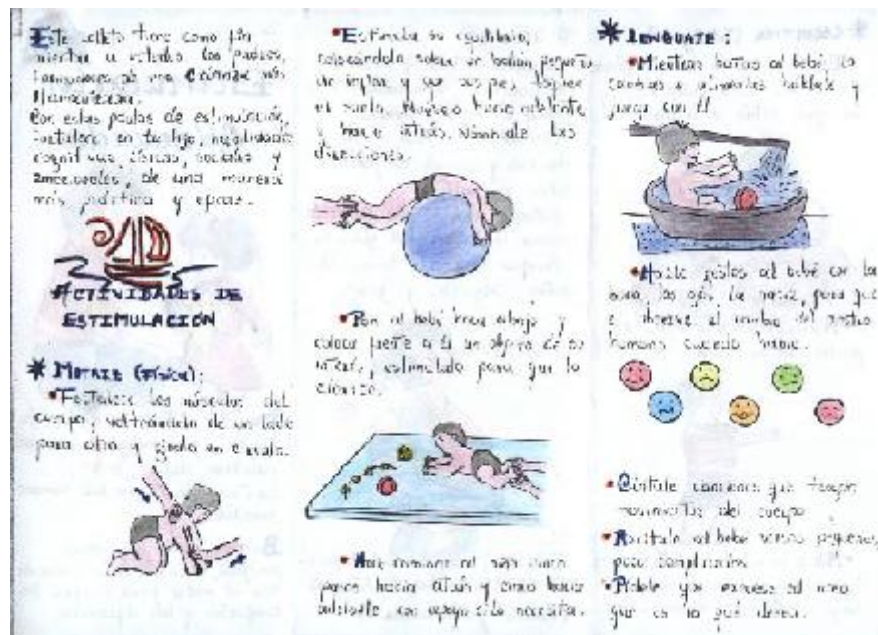 Este folleto tiene como fin
orientar a ustedes los padres,
Con estas pautas de estimulación,
fortalecerá en tu hijo, habilidades
cognitivas, físicas, sociales y
emocionales, de una manera
más práctica y eficaz.
ACTIVIDADES DE
ESTIMULACIÓN
* MOTRIZ (FÍSICA):
• Fortalece los músculos del
cuerpo, volteándolo de un lado
para otro y
• Estimula su equilibrio,
colocándolo sobre un balón pequeño
de inflar y que sus pies toquen
el suelo. Muévelo hacia adelante
y hacia atrás. las
direcciones.
• Pon al bebé boca abajo y
coloca frente a él un objeto de su
interés, para que lo
• al niño cinco
pasos hacia atrás y cinco hacia
adelante, con apoyo si lo necesita.
* LENGUAJE:
• Mientras bañas al bebé, lo
cambias o alimentas háblale y
juega con él.
• Hazle gestos al bebé con la
boca, los ojos, la nariz, para que
observe el cambio del rostro
humano cuando
• Cántale canciones que tengan
movimientos del cuerpo
• al bebé versos pequeños,
poco complicados
• Pídele que exprese
que es lo que desea.